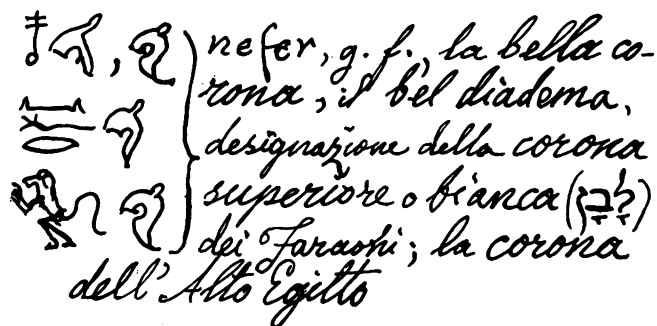 nefer, g. f., la bella co-
rona, il bel diadema,
designazione della corona
superiore o bianca (לבן)
dei Faraoni; la corona
dell'Alto Egitto